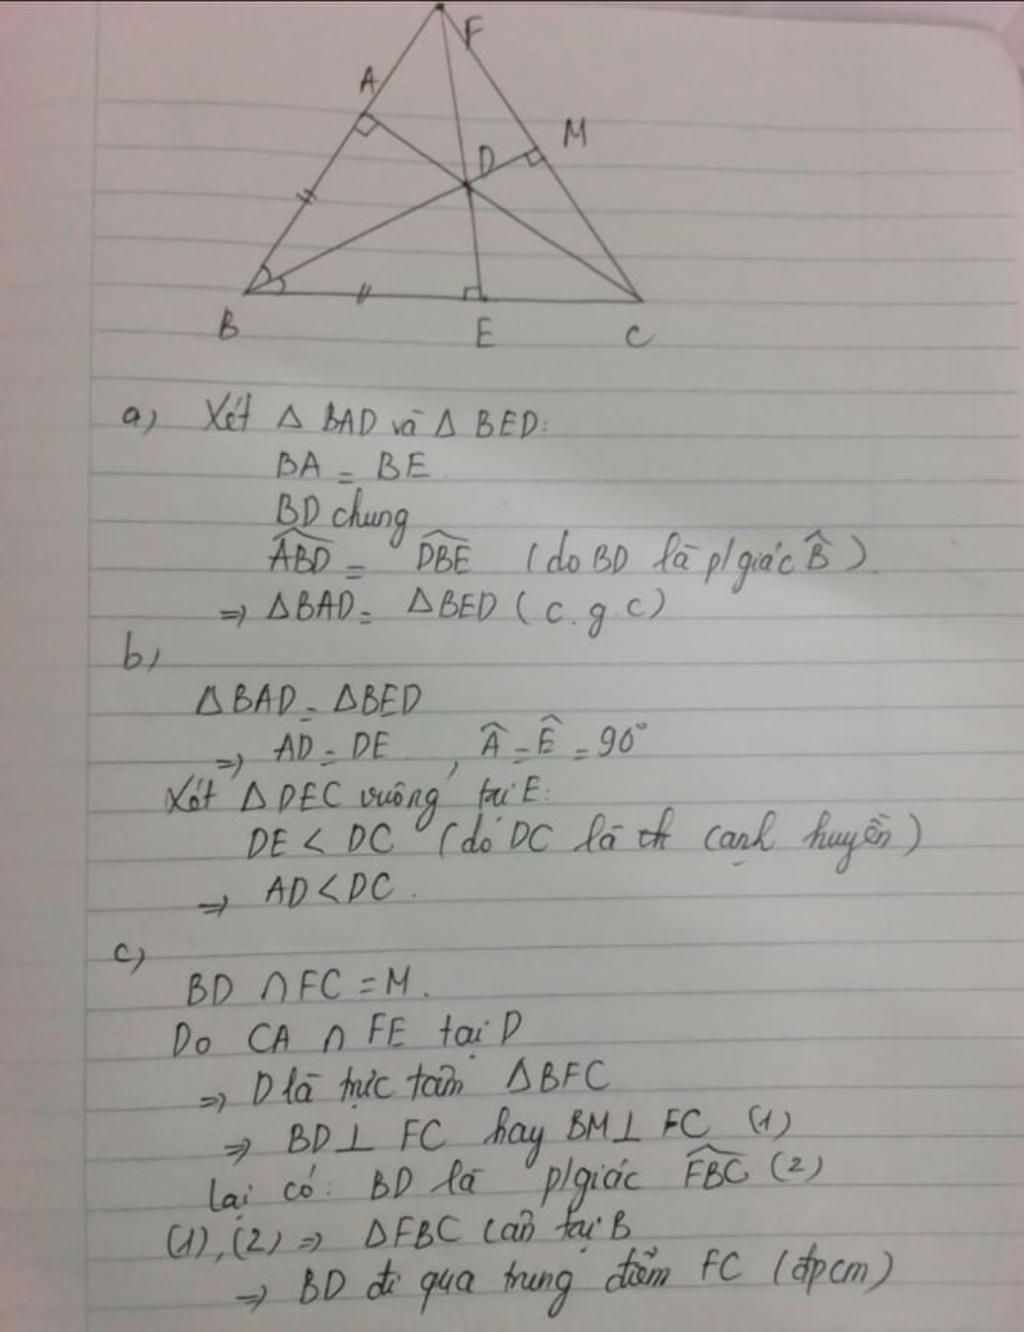 F
A
M
D
B
E
C
a) Xét Δ BAD và Δ BED:
BA = BE
BD chung
\widehat{ABD} = \widehat{DBE} (do BD là p/giác \widehat{B}).
=> ΔBAD = ΔBED (c.g.c)
b)
ΔBAD = ΔBED
=> AD = DE , \widehat{A} = \widehat{E} = 90°
Xét ΔDEC vuông tại E:
DE < DC (do DC là cạnh huyền)
=> AD < DC.
c)
BD ∩ FC = M.
Do CA ∩ FE tại D
=> D là trực tâm ΔBFC
=> BD ⊥ FC hay BM ⊥ FC (1)
lại có: BD là p/giác \widehat{FBC} (2)
(1), (2) => ΔFBC cân tại B
=> BD đi qua trung điểm FC (đpcm)